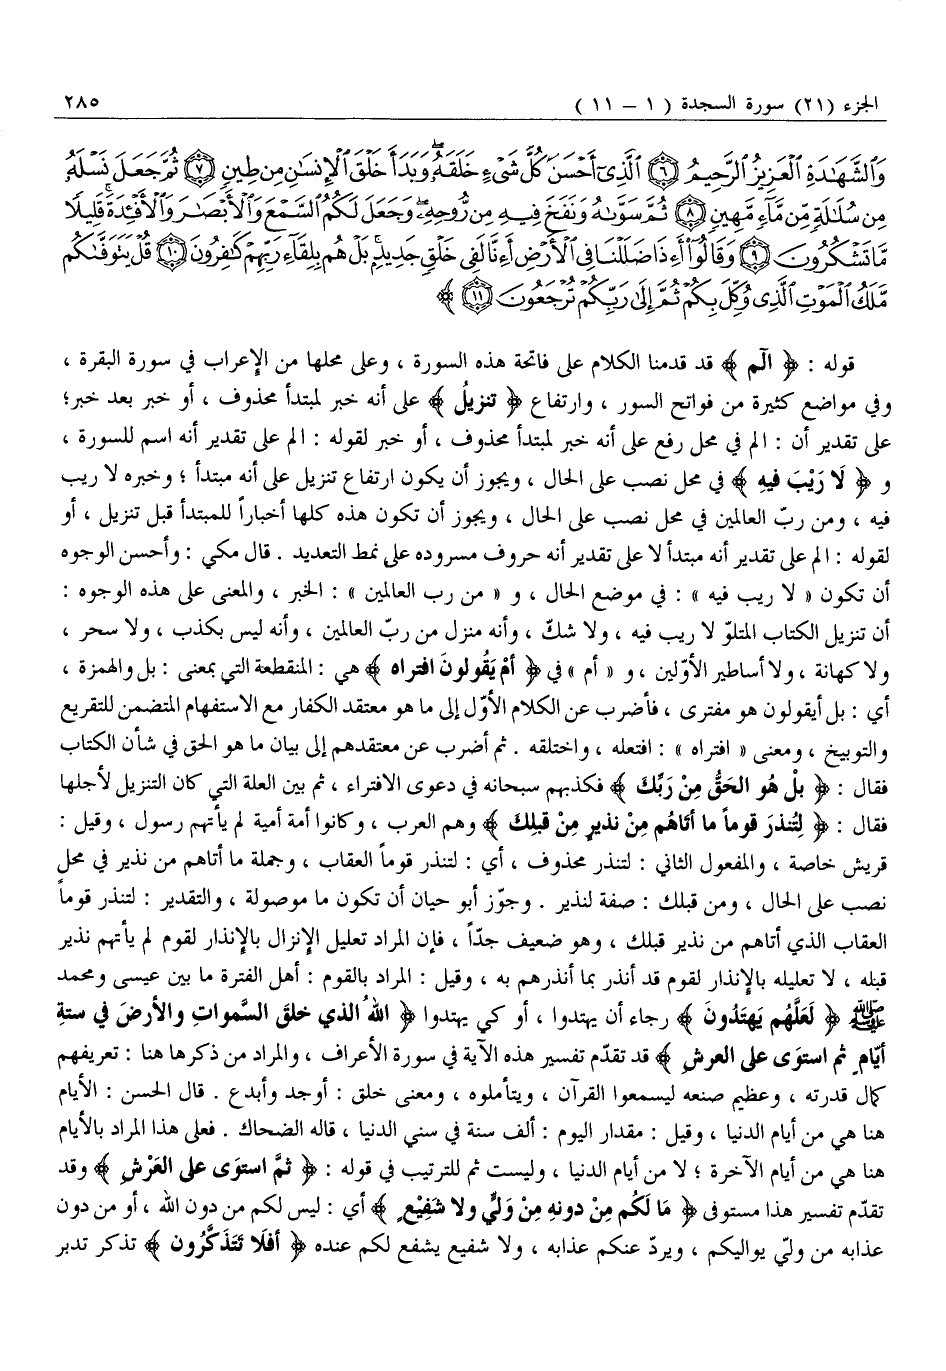 الجزء (٢١) سورة السجدة ( ١ - ١١ ) ٢٨٥
وَٱلشَّهَٰدَةِ ٱلْعَزِيزُ ٱلرَّحِيمُ ﴿٦﴾ ٱلَّذِىٓ أَحْسَنَ كُلَّ شَىْءٍ خَلَقَهُۥ وَبَدَأَ خَلْقَ ٱلْإِنسَٰنِ مِن طِينٍ ﴿٧﴾ ثُمَّ جَعَلَ نَسْلَهُۥ
مِن سُلَٰلَةٍ مِّن مَّآءٍ مَّهِينٍ ﴿٨﴾ ثُمَّ سَوَّىٰهُ وَنَفَخَ فِيهِ مِن رُّوحِهِۦ وَجَعَلَ لَكُمُ ٱلسَّمْعَ وَٱلْأَبْصَٰرَ وَٱلْأَفْـِٔدَةَ قَلِيلًا
مَّا تَشْكُرُونَ ﴿٩﴾ وَقَالُوٓا۟ أَءِذَا ضَلَلْنَا فِى ٱلْأَرْضِ أَءِنَّا لَفِى خَلْقٍ جَدِيدٍۭ بَلْ هُم بِلِقَآءِ رَبِّهِمْ كَٰفِرُونَ ﴿١٠﴾ قُلْ يَتَوَفَّىٰكُم
مَّلَكُ ٱلْمَوْتِ ٱلَّذِى وُكِّلَ بِكُمْ ثُمَّ إِلَىٰ رَبِّكُمْ تُرْجَعُونَ ﴿١١﴾ ﴾
قوله : ﴿ الٓم ﴾ قد قدمنا الكلام على فاتحة هذه السورة ، وعلى محلها من الإعراب في سورة البقرة ،
وفي مواضع كثيرة من فواتح السور ، وارتفاع ﴿ تنزيلُ ﴾ على أنه خبر لمبتدأ محذوف ، أو خبر بعد خبر؛
على تقدير أن : الم في محل رفع على أنه خبر لمبتدأ محذوف ، أو خبر لقوله : الم على تقدير أنه اسم للسورة ،
و ﴿ لَا رَيْبَ فيهِ ﴾ في محل نصب على الحال ، ويجوز أن يكون ارتفاع تنزيل على أنه مبتدأ ؛ وخبره لا ريب
فيه ، ومن ربّ العالمين في محل نصب على الحال ، ويجوز أن تكون هذه كلها أخباراً للمبتدأ قبل تنزيل ، أو
لقوله : الم على تقدير أنه مبتدأ لا على تقدير أنه حروف مسروده على نمط التعديد . قال مكي : وأحسن الوجوه
أن تكون « لا ريب فيه » : في موضع الحال ، و « من رب العالمين » : الخبر ، والمعنى على هذه الوجوه :
أن تنزيل الكتاب المتلوّ لا ريب فيه ، ولا شكّ ، وأنه منزل من ربّ العالمين ، وأنه ليس بكذب ، ولا سحر ،
ولا كهانة ، ولا أساطير الأوّلين ، و « أم » في ﴿ أمْ يَقُولونَ افتراه ﴾ هي : المنقطعة التي بمعنى : بل والهمزة ،
أي : بل أيقولون هو مفترى ، فأضرب عن الكلام الأوّل إلى ما هو معتقد الكفار مع الاستفهام المتضمن للتقريع
والتوبيخ ، ومعنى « افتراه » : افتعله ، واختلقه . ثم أضرب عن معتقدهم إلى بيان ما هو الحق في شأن الكتاب
فقال : ﴿ بلْ هُو الحَقُّ مِنْ رَبِّكَ ﴾ فكذبهم سبحانه في دعوى الافتراء ، ثم بين العلة التي كان التنزيل لأجلها
فقال : ﴿ لِتُنذرَ قوماً ما أتاهُم مِنْ نذيرٍ مِنْ قبلِك ﴾ وهم العرب ، وكانوا أمة أمية لم يأتهم رسول ، وقيل :
قريش خاصة ، والمفعول الثاني : لتنذر محذوف ، أي : لتنذر قوماً العقاب ، وجملة ما أتاهم من نذير في محل
نصب على الحال ، ومن قبلك : صفة لنذير . وجوّز أبو حيان أن تكون ما موصولة ، والتقدير : لتنذر قوماً
العقاب الذي أتاهم من نذير قبلك ، وهو ضعيف جدّاً ، فإن المراد تعليل الإنزال بالإنذار لقوم لم يأتهم نذير
قبله ، لا تعليله بالإنذار لقوم قد أنذر بما أنذرهم به ، وقيل : المراد بالقوم : أهل الفترة ما بين عيسى ومحمد
ﷺ ﴿ لَعَلَّهُم يَهتَدُونَ ﴾ رجاء أن يهتدوا ، أو كي يهتدوا ﴿ اللهُ الذي خلقَ السَّمواتِ والأرضَ في ستةِ
أيّامٍ ثم استوَى على العرشِ ﴾ قد تقدّم تفسير هذه الآية في سورة الأعراف ، والمراد من ذكرها هنا : تعريفهم
كمال قدرته ، وعظيم صنعه ليسمعوا القرآن ، ويتأملوه ، ومعنى خلق : أوجد وأبدع . قال الحسن : الأيام
هنا هي من أيام الدنيا ، وقيل : مقدار اليوم : ألف سنة في سني الدنيا ، قاله الضحاك . فعلى هذا المراد بالأيام
هنا هي من أيام الآخرة ؛ لا من أيام الدنيا ، وليست ثم للترتيب في قوله : ﴿ ثمَّ استوَى على العَرْشِ ﴾ وقد
تقدّم تفسير هذا مستوفى ﴿ مَا لَكُم مِنْ دونِهِ مِنْ وَليٍّ ولا شفيْعٍ ﴾ أي : ليس لكم من دون الله ، أو من دون
عذابه من وليّ يواليكم ، ويردّ عنكم عذابه ، ولا شفيع يشفع لكم عنده ﴿ أفلَا تَتَذكَّرُون ﴾ تذكر تدبر